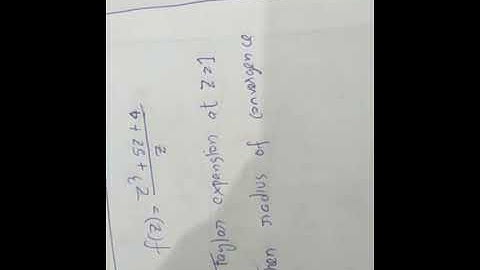 f(z) = z³ + 5z + 4 / z
Taylor expansion at z=1
then radius of convergence